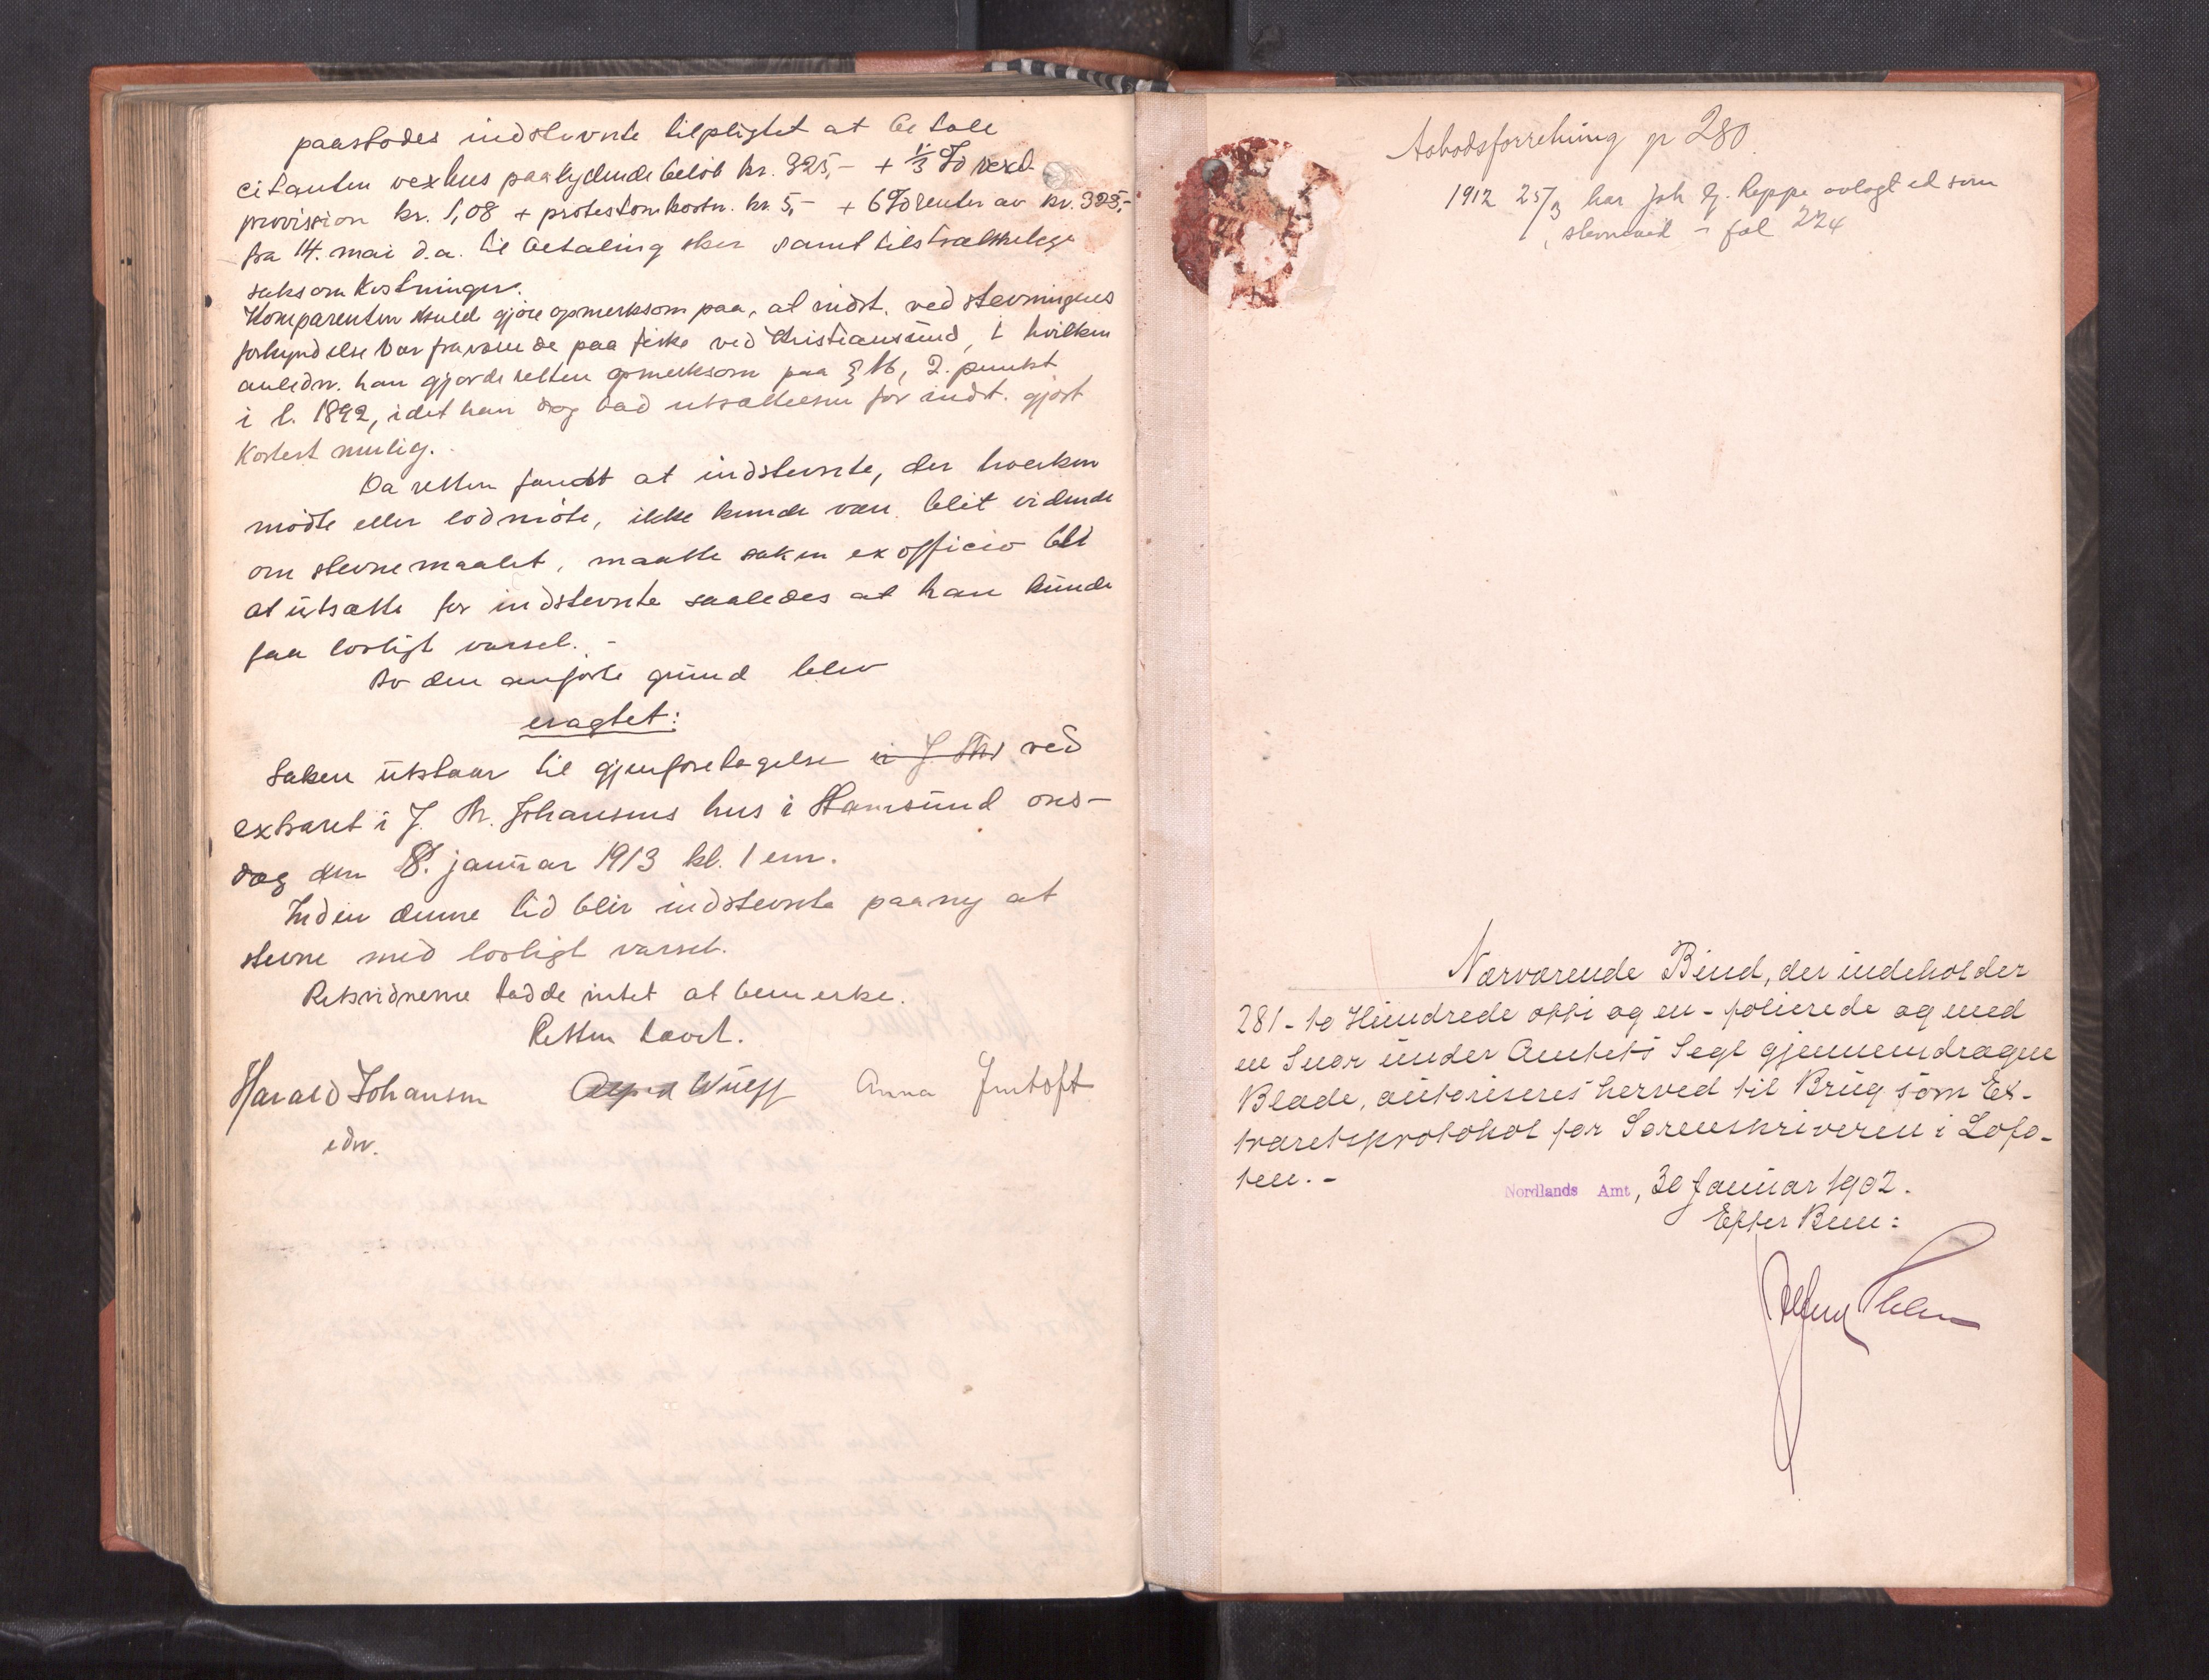 paastodes indstevnte tilpligtet at betale
citanten vexlens paalydende beløb kr. 325,- + 1/3 % vexl.
provision kr. 1,08 + protestomkostn. kr. 5,- + 6% renter av kr. 325,-
fra 14. mai d.a. til betaling sker samt tilstrækkelige
saksomkostninger.
Komparenten skuld gjøre opmerksom paa, at indst. ved stevningens
forkyndelse var fraværende paa fiske ved Kristiansund, i hvilken
anledn. han gjorde retten opmerksom paa § 16, 2. punkt
i l. 1892, idet han dog bad utsættelsen for indst. gjort
kortest mulig.
Da retten fandt at indstevnte, der hverken
mødte eller lod møte, ikke kunde være blit vidende
om stevnemaalet, maatte saken ex officio bli
at utsætte for indstevnte saaledes at han kunde
faa lovligt varsel. -
Av den anførte grund blev
eragtet:
Saken utstaar til gjenforetagelse i J. Th. ved
extraret i J. Th. Johansens hus i Stamsund ons-
dag den 8. januar 1913 kl. 1 em.
Inden denne tid blir indstevnte paany at
stevne med lovligt varsel.
Retsvidnerne hadde intet at bemerke.
Retten hævet.
Harald Johansen Alfred Wulff Anna Jentoft
edv.
Aabodsforretning p 280
1912 25/3 har Joh Ej. Reppe avlagt ed som
stevnevid - fol 224
Nærværende Bind, der indeholder
281 - to Hundrede otti og en - folierede og med
en Snor under Amtets Segl gjennemdragne
Blade, autoriseres herved til Brug som Ex-
traretsprotokol for Sorenskriveren i Lofo-
ten. -
Nordlands Amt, 30 Januar 1902.
Efter Bem: